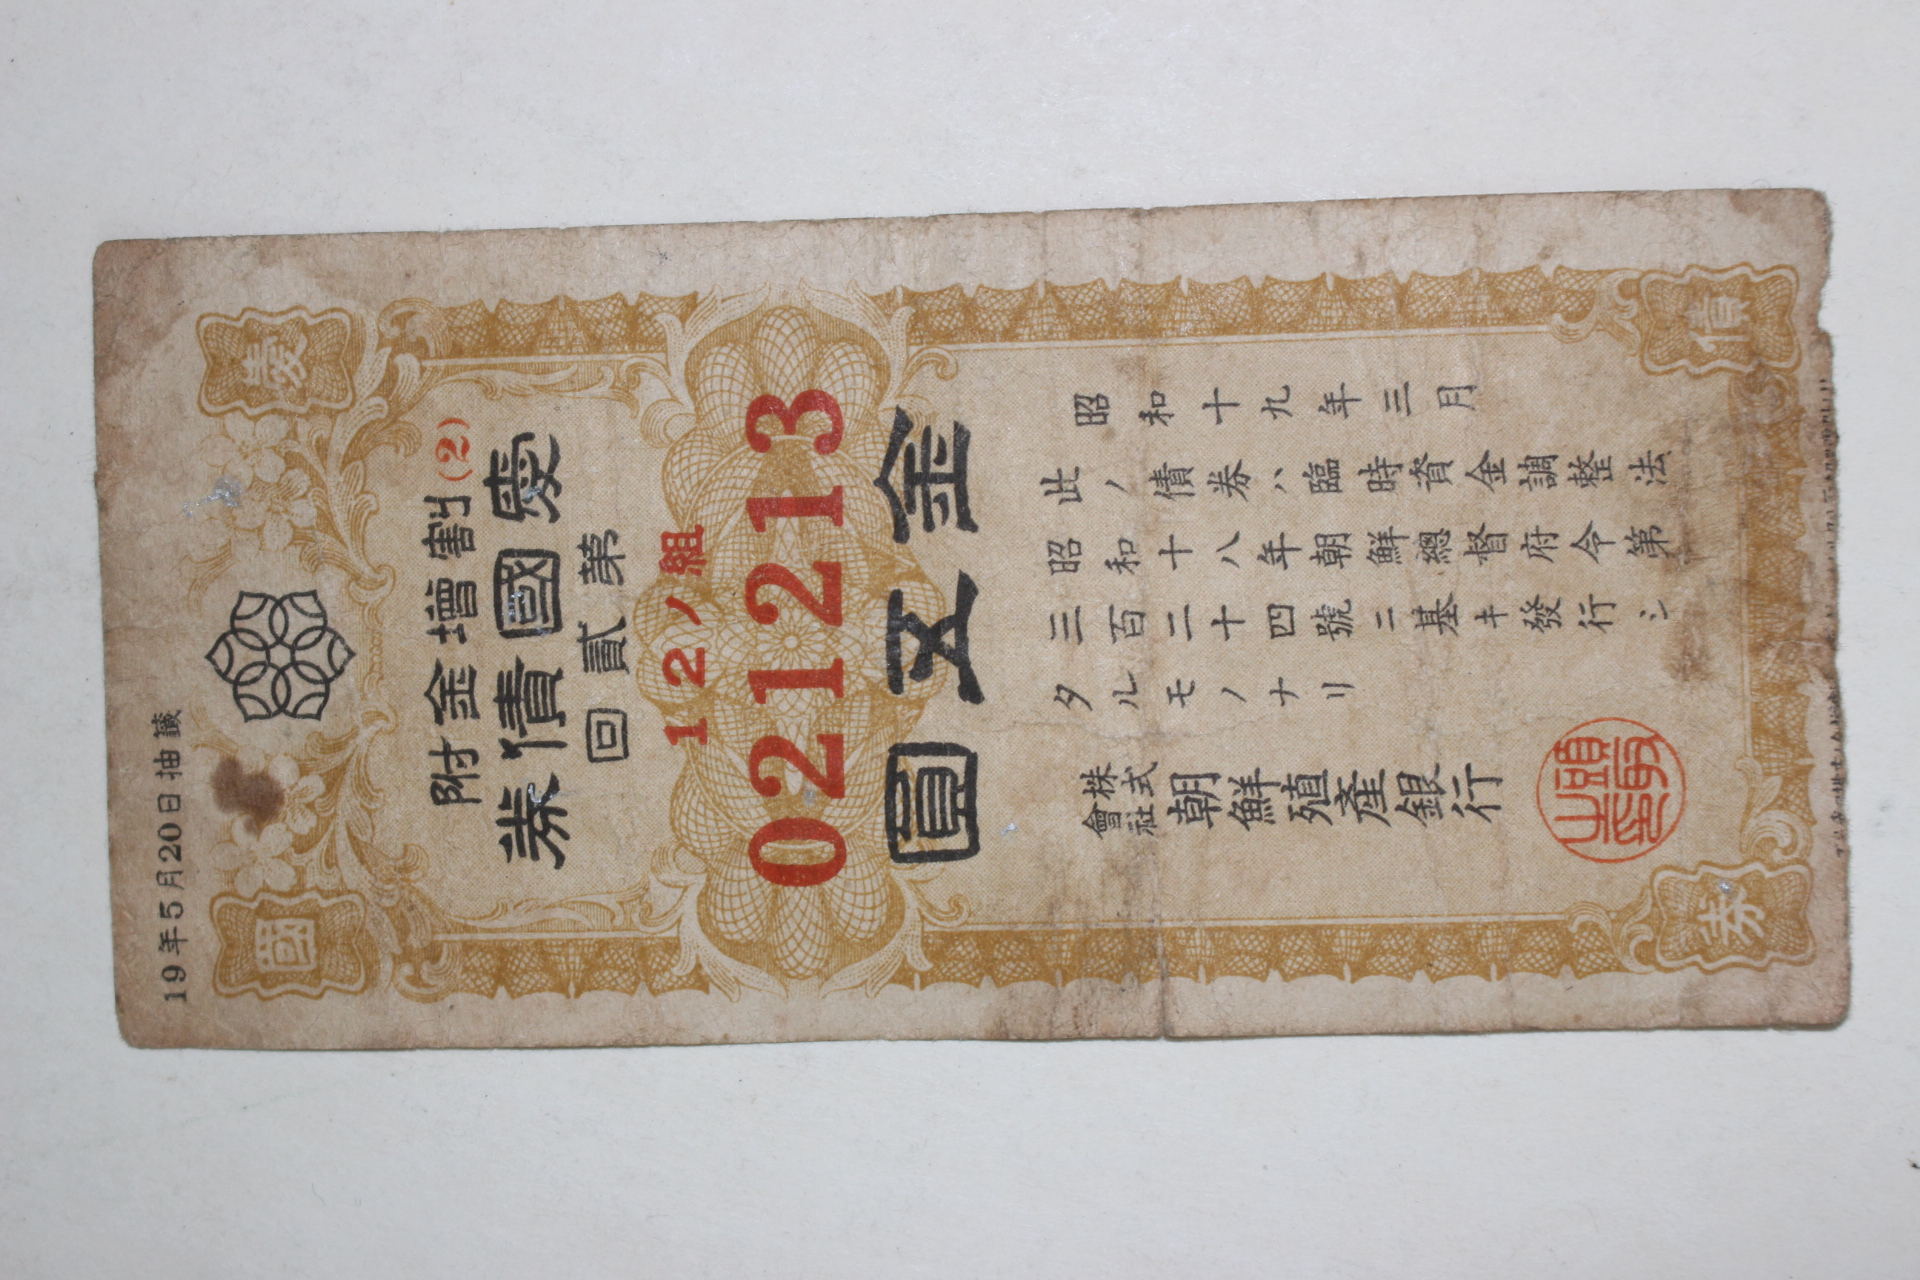 19年5月20日抽籤
愛國
(2)割增金附
愛國債券
第貳回
12ノ組
021213
金五圓
昭和十九年三月
此ノ債券ハ臨時資金調整法
昭和十八年朝鮮總督府令第
三百二十四號ニ基キ發行シ
タルモノナリ
株式會社朝鮮殖產銀行
頭取之印
債券